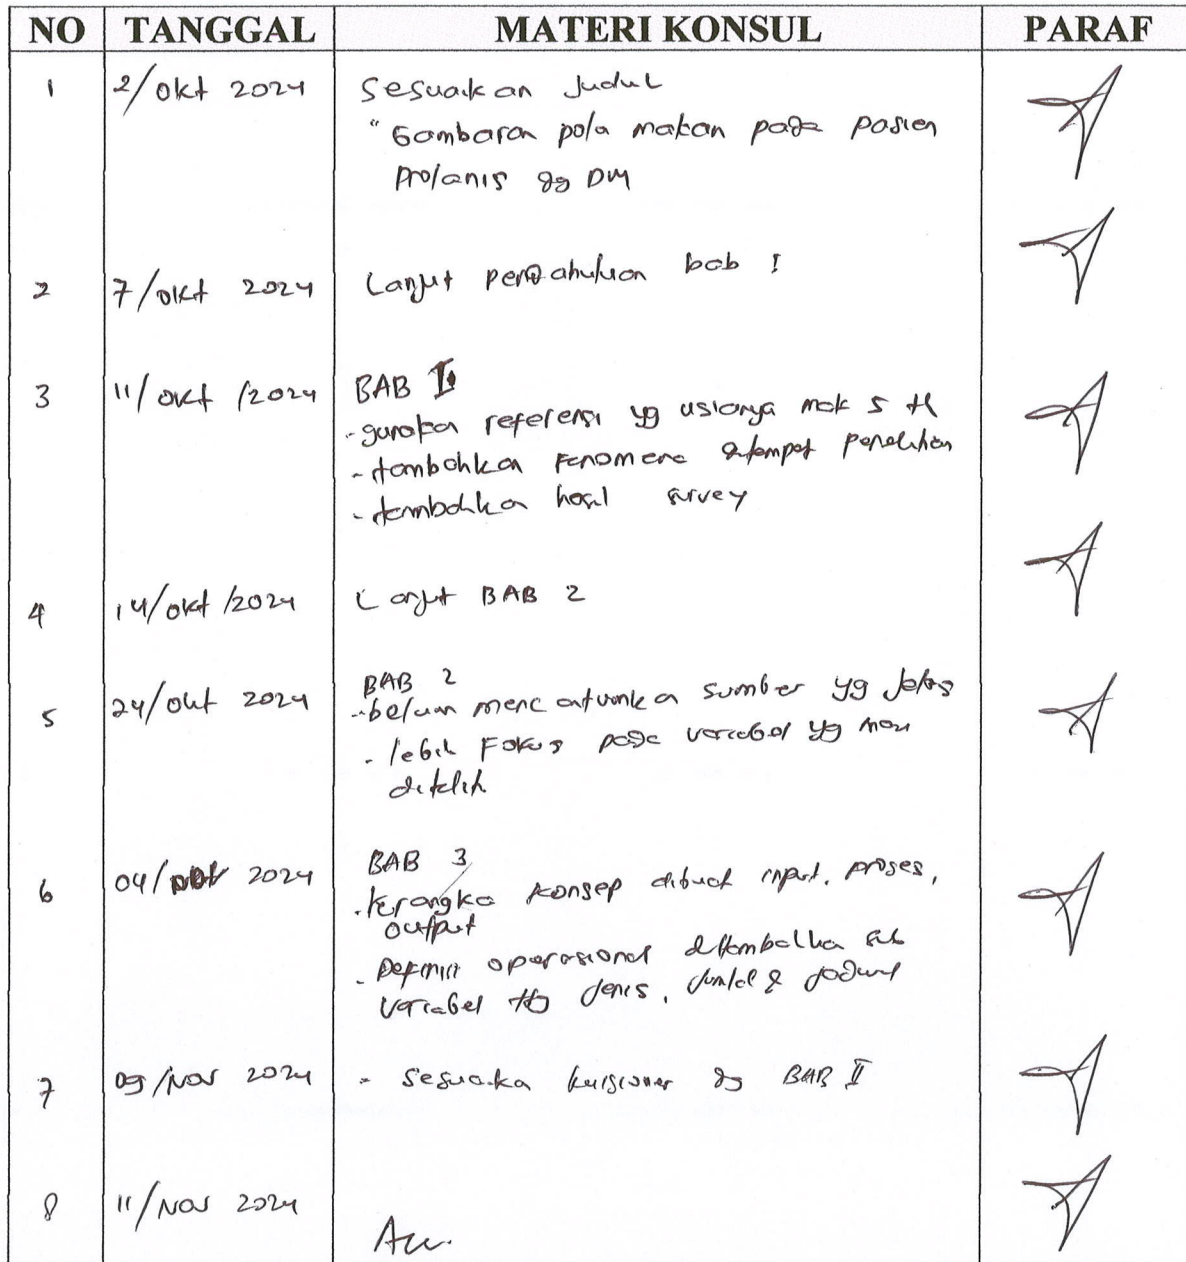 NO TANGGAL MATERI KONSUL PARAF
1 2/Okt 2024 Sesuaikan Judul
"Gambaran pola makan pada pasien
Prolanis dg DM
2 7/okt 2024 Lanjut pendahuluan bab I
3 11/okt/2024 BAB I
- gunakan referensi yg usianya mak 5 th
- tambahkan Fenomena ditempat penelitian
- tambahkan hasil survey
4 14/okt/2024 Lanjut BAB 2
5 24/okt 2024 BAB 2
- belum mencantumkan sumber yg jelas
- lebih Fokus pada variabel yg mau
diteliti
6 04/ 2024 BAB 3
- kerangka konsep dibuat input, proses,
output
- Definisi operasional ditambahka sub
variabel ttg jenis, jumlah & jadwal
7 09/Nov 2024 - sesuaika kuisioner dg BAB II
8 11/Nov 2024
Acc.